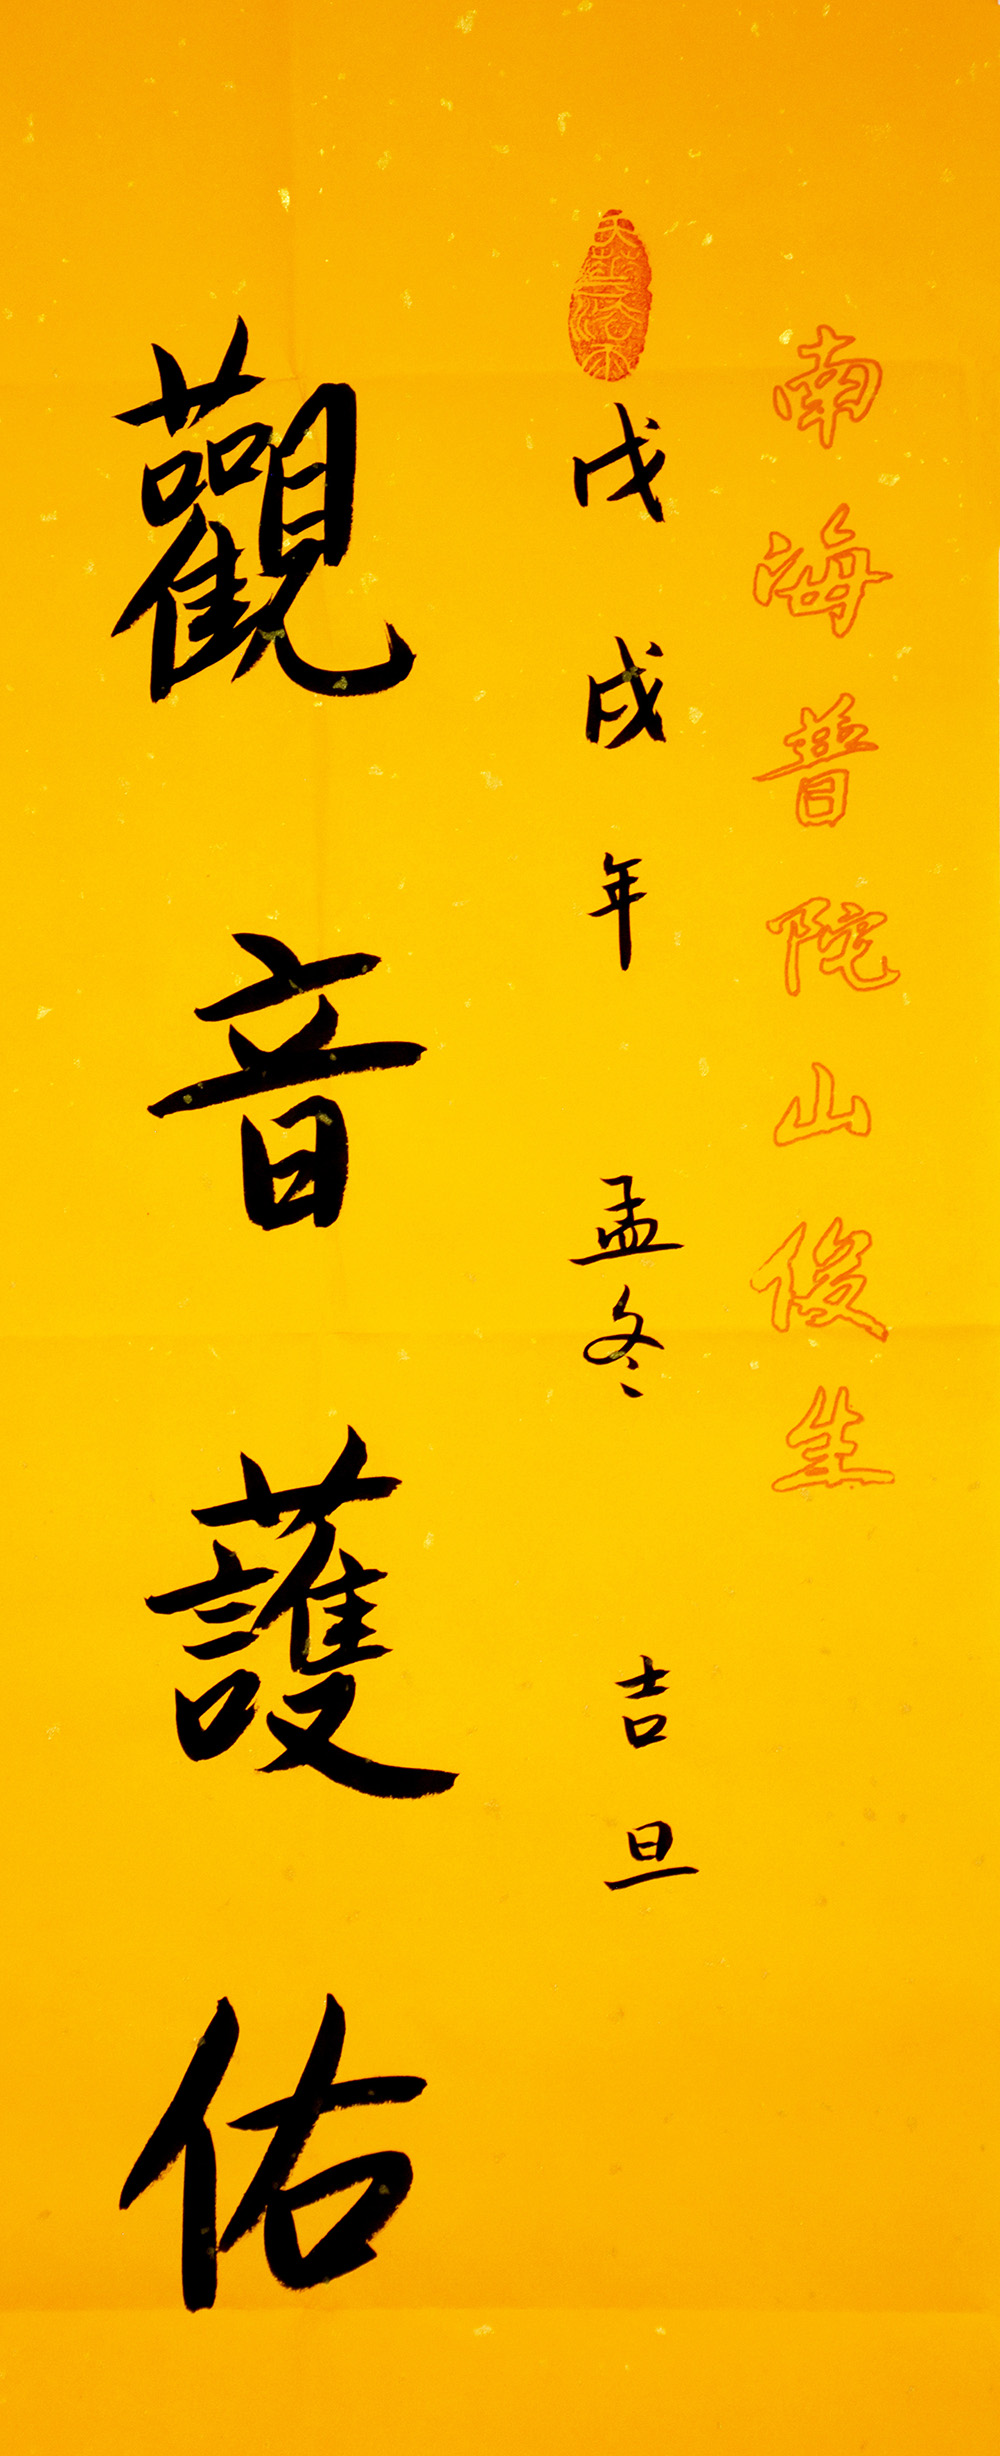 南海普陀山俊生
戊戌年 孟冬 吉旦
觀音護佑